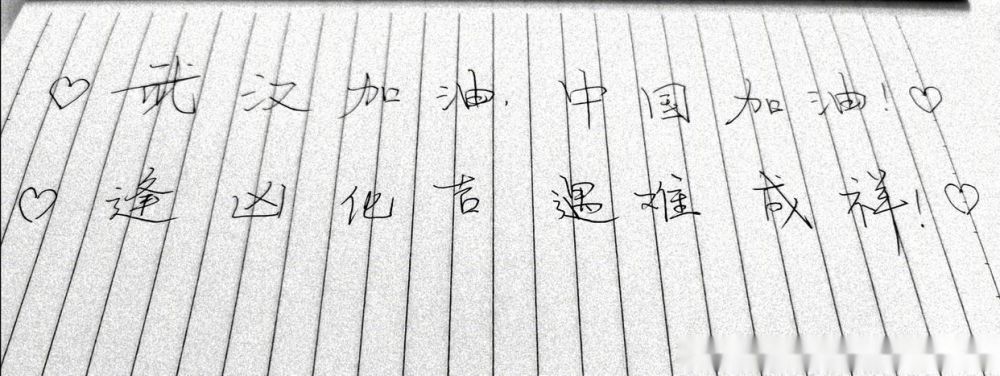 ♡武汉加油,中国加油!♡
♡逢凶化吉遇难成祥!♡